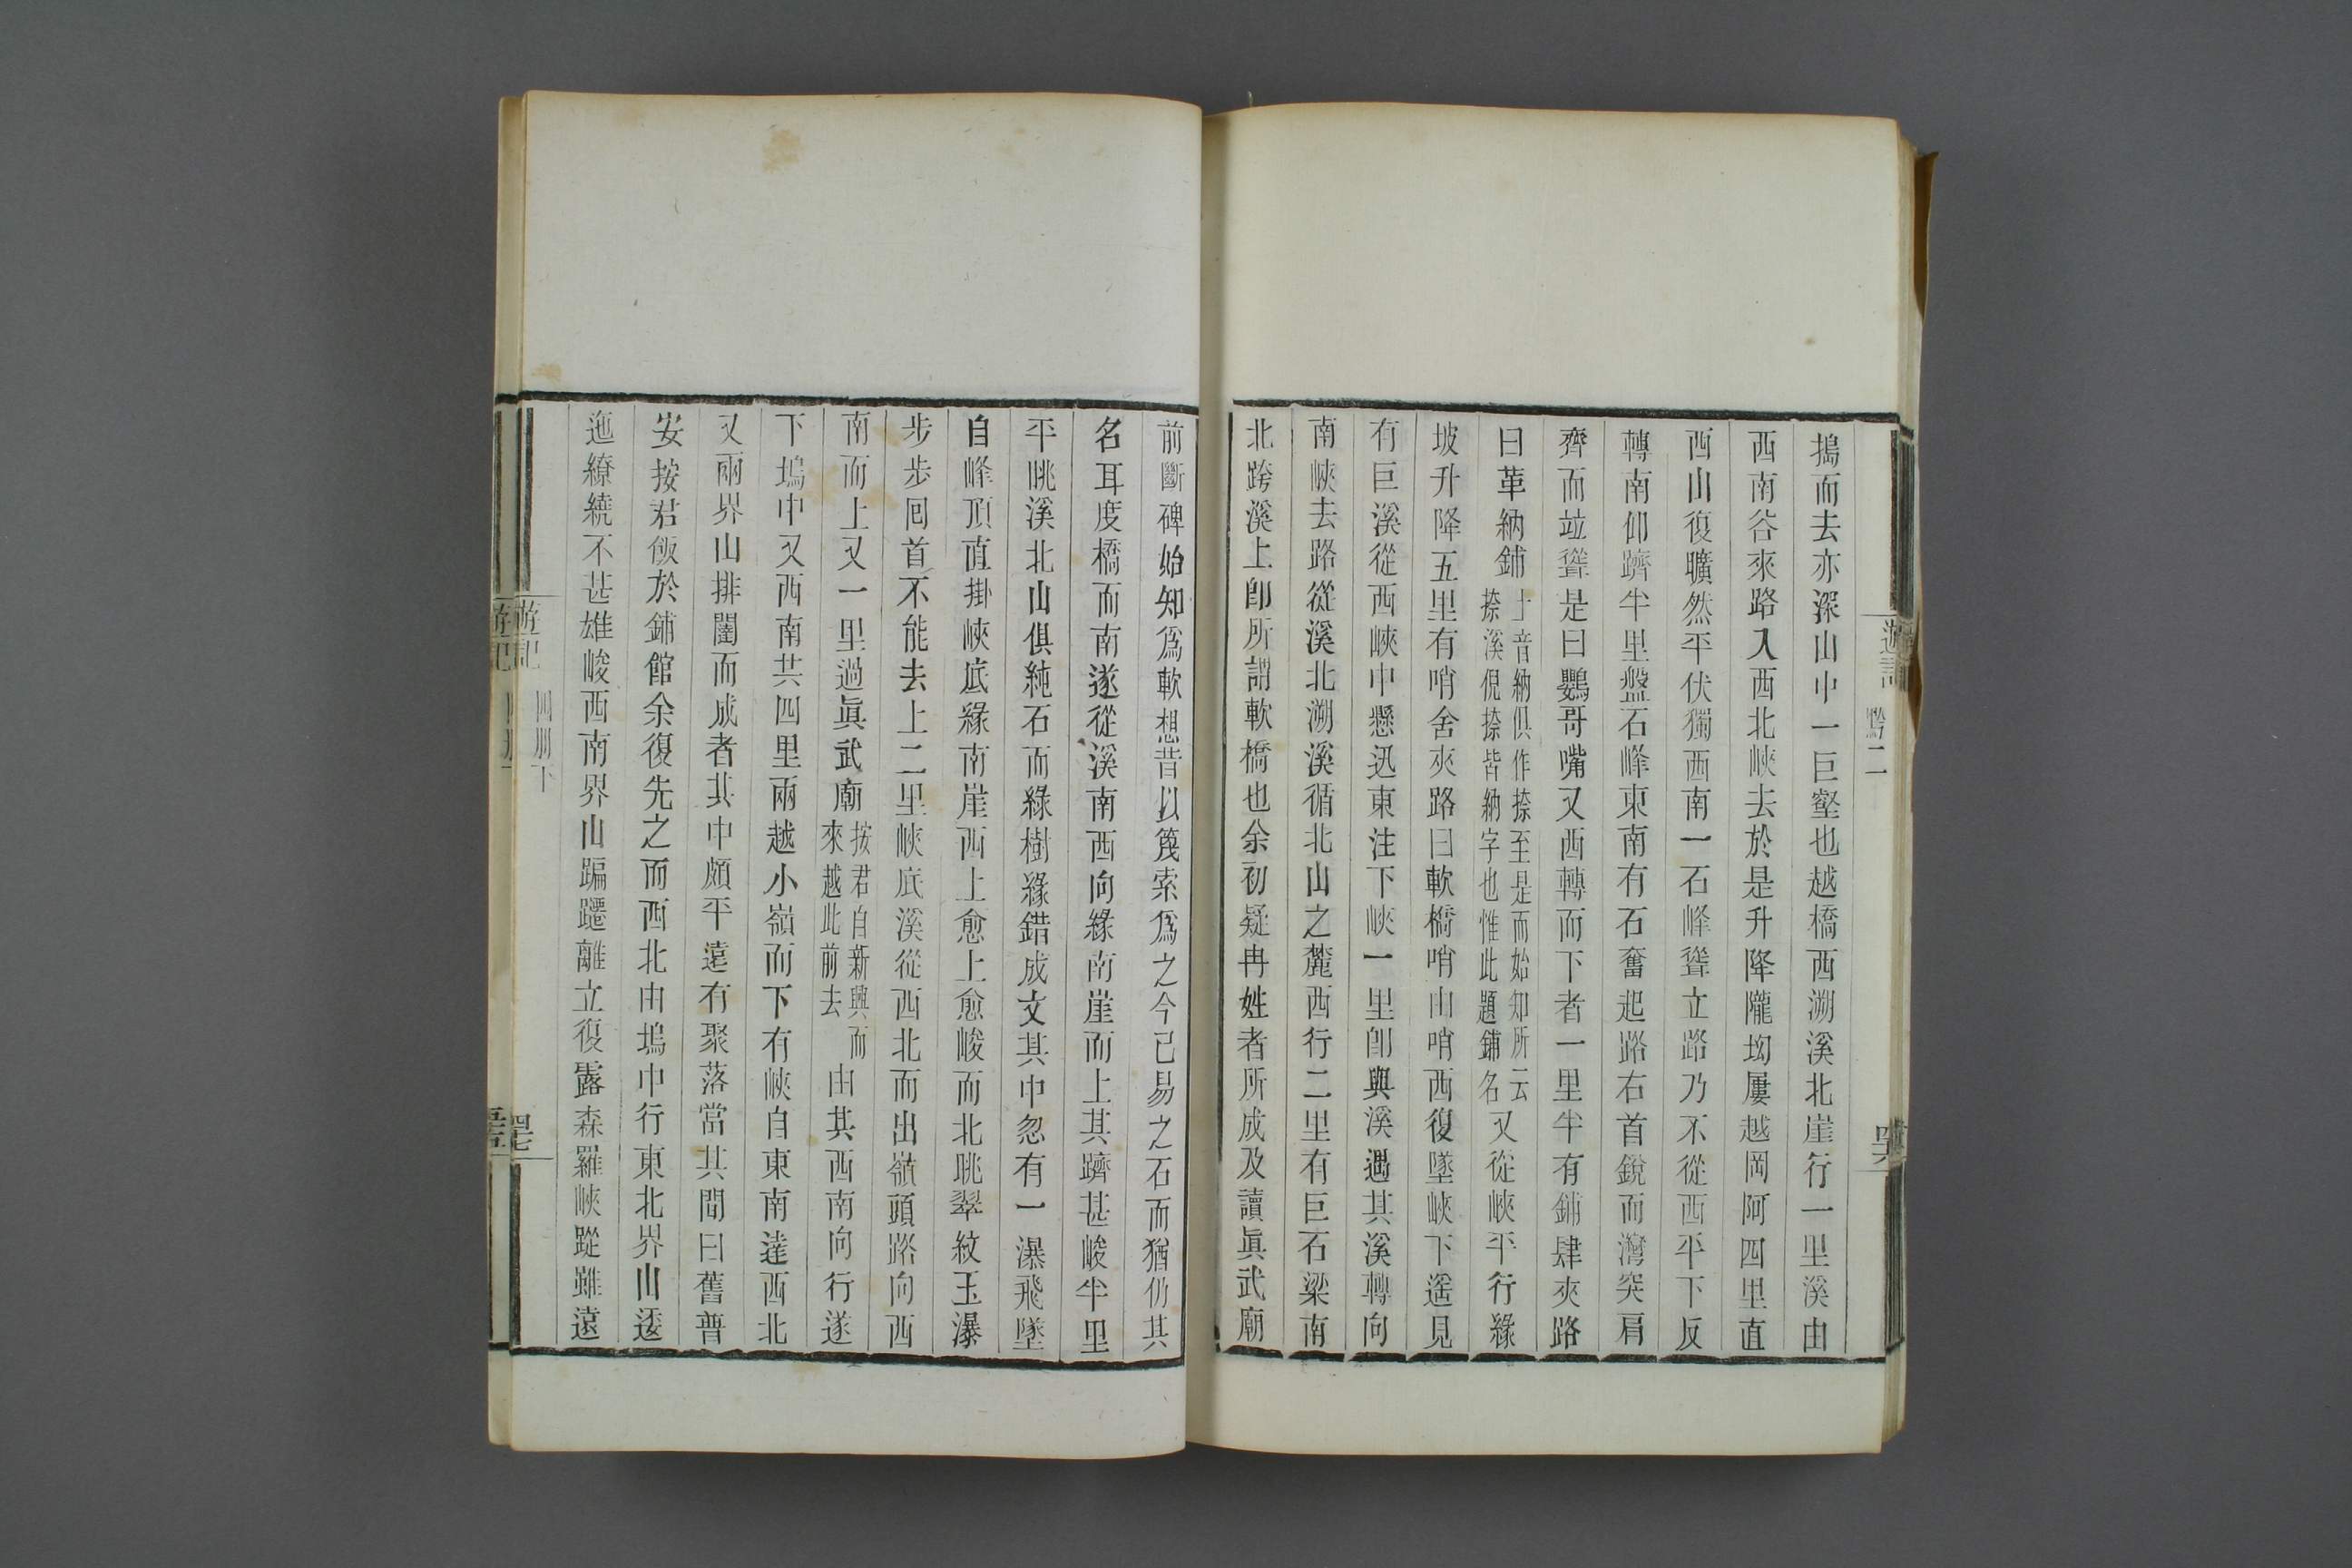 遊記
黔二
搗而去亦深山中一巨壑也越橋西溯溪北崖行一里溪由
西南谷來路入西北峽去於是升降隴坳屢越岡阿四里直
西山復曠然平伏獨西南一石峰聳立路乃不從西平下反
轉南仰躋半里盤石峰東南有石奮起路右首銳而灣突肩
齊而竝聳是曰鸚哥嘴又西轉而下者一里半有鋪肆夾路
曰革納鋪
土音納俱作捺至是而始知所云
捺溪倪捺皆納字也惟此題鋪名
又從峽平行緣
坡升降五里有哨舍夾路曰軟橋哨由哨西復墜峽下遙見
有巨溪從西峽中懸迅東注下峽一里卽與溪遇其溪轉向
南峽去路從溪北溯溪循北山之麓西行二里有巨石梁南
北跨溪上卽所謂軟橋也余初疑冉姓者所成及讀眞武廟
前斷碑始知爲軟想昔以篾索爲之今已易之石而猶仍其
名耳度橋而南遂從溪南西向緣南崖而上其躋甚峻半里
平眺溪北山俱純石而綠樹緣錯成文其中忽有一瀑飛墜
自峰頂直掛峽底緣南崖西上愈上愈峻而北眺翠紋玉瀑
步步回首不能去上二里峽底溪從西北而出嶺頭路向西
南而上又一里過眞武廟
按君自新興而
來越此前去
由其西南向行遂
下塢中又西南共四里兩越小嶺而下有峽自東南達西北
又兩界山排闥而成者其中頗平遠有聚落當其間曰舊普
安按君飯於鋪館余復先之而西北由塢中行東北界山逶
迤繚繞不甚雄峻西南界山蹁蹮離立復露森羅峽蹤雖遠
遊記
四冊下